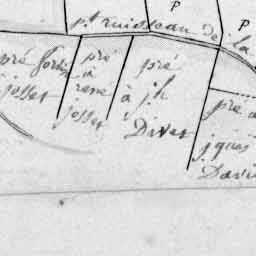 P
P
pt ruisseau de la
pré
josset
pré
à
rene
josset
pré
à j.h
Divet
pre a
jques
Davi